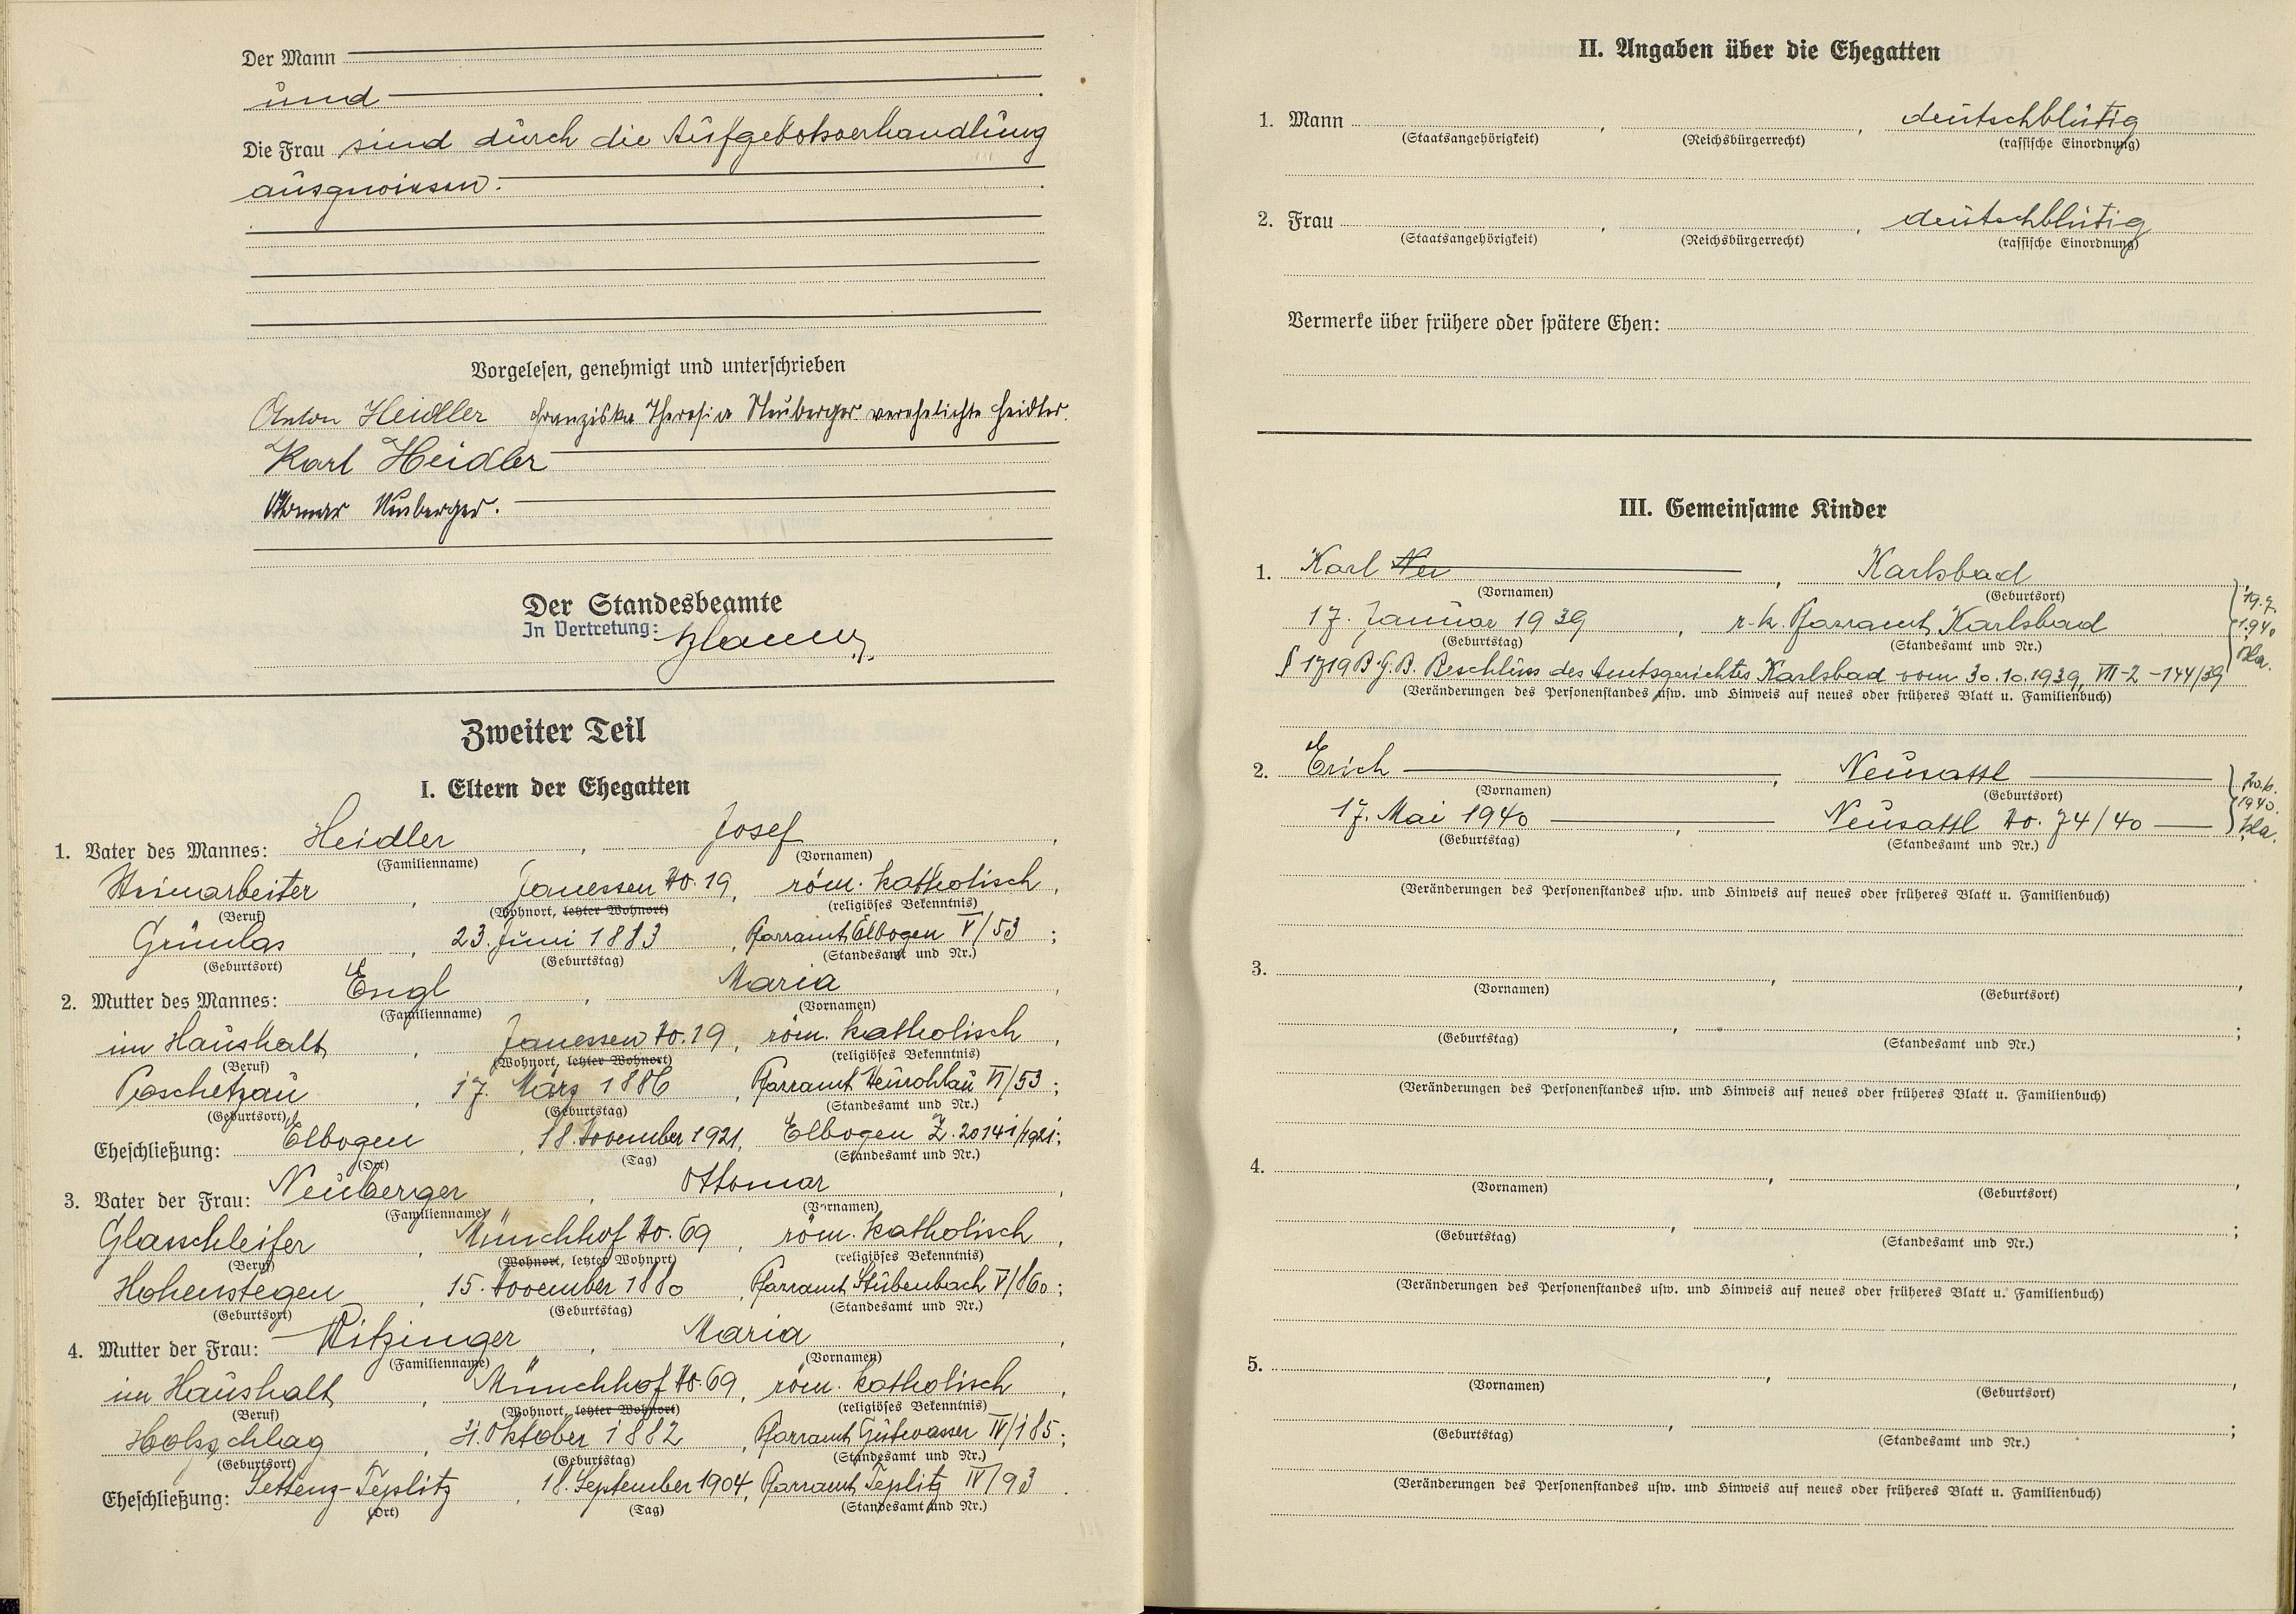 Der Mann
und
Die Frau sind durch die Aufgebotsverhandlung
ausgewiesen.
Vorgelesen, genehmigt und unterschrieben
Anton Heidler Franziska Theresia Neuberger verehelichte Heidler.
Karl Heidler
Neuberger.
Der Standesbeamte
In Vertretung:
Zweiter Teil
I. Eltern der Ehegatten
1. Vater des Mannes: Heidler, Josef,
(Familienname) (Vornamen)
Heimarbeiter, Janessen No. 19, röm. katholisch,
(Beruf) (Wohnort, letzter Wohnort) (religiöses Bekenntnis)
Grünlas, 23. Juni 1883, Pfarramt Elbogen V/53;
(Geburtsort) (Geburtstag) (Standesamt und Nr.)
2. Mutter des Mannes: Engl, Maria,
(Familienname) (Vornamen)
im Haushalt, Janessen No. 19, röm. katholisch,
(Beruf) (Wohnort, letzter Wohnort) (religiöses Bekenntnis)
Poschetzau, 17. März 1886, Pfarramt Neurohlau VI/53;
(Geburtsort) (Geburtstag) (Standesamt und Nr.)
Eheschließung: Elbogen, 18. November 1921, Elbogen Z. 20141/1921;
(Ort) (Tag) (Standesamt und Nr.)
3. Vater der Frau: Neuberger, Ottomar,
(Familienname) (Vornamen)
Glasschleifer, Münchhof No. 69, röm. katholisch,
(Beruf) (Wohnort, letzter Wohnort) (religiöses Bekenntnis)
Hohenstegen, 15. November 1880, Pfarramt Stubenbach V/860;
(Geburtsort) (Geburtstag) (Standesamt und Nr.)
4. Mutter der Frau: Witzinger, Maria,
(Familienname) (Vornamen)
im Haushalt, Münchhof No. 69, röm. katholisch,
(Beruf) (Wohnort, letzter Wohnort) (religiöses Bekenntnis)
Holzschlag, 31. Oktober 1882, Pfarramt Gutwasser IV/185;
(Geburtsort) (Geburtstag) (Standesamt und Nr.)
Eheschließung: Settenz-Teplitz, 18. September 1904, Pfarramt Teplitz IV/93.
(Ort) (Tag) (Standesamt und Nr.)
II. Angaben über die Ehegatten
1. Mann , , deutschblütig
(Staatsangehörigkeit) (Reichsbürgerrecht) (rassische Einordnung)
2. Frau , , deutschblütig
(Staatsangehörigkeit) (Reichsbürgerrecht) (rassische Einordnung)
Vermerke über frühere oder spätere Ehen:
III. Gemeinsame Kinder
1. Karl Neu, Karlsbad
(Vornamen) (Geburtsort)
17. Januar 1939, r.-k. Pfarramt Karlsbad
(Geburtstag) (Standesamt und Nr.)
19.7.
1940
§ 1719 B.G.B. Beschluss des Amtsgerichtes Karlsbad vom 30.10.1939, VII-2-144/39
(Veränderungen des Personenstandes usw. und Hinweis auf neues oder früheres Blatt u. Familienbuch)
2. Erich, Neusattl
(Vornamen) (Geburtsort)
17. Mai 1940, Neusattl No. 74/40
(Geburtstag) (Standesamt und Nr.)
1940.
(Veränderungen des Personenstandes usw. und Hinweis auf neues oder früheres Blatt u. Familienbuch)
3. , ,
(Vornamen) (Geburtsort)
, ;
(Geburtstag) (Standesamt und Nr.)
(Veränderungen des Personenstandes usw. und Hinweis auf neues oder früheres Blatt u. Familienbuch)
4. , ,
(Vornamen) (Geburtsort)
, ;
(Geburtstag) (Standesamt und Nr.)
(Veränderungen des Personenstandes usw. und Hinweis auf neues oder früheres Blatt u. Familienbuch)
5. , ,
(Vornamen) (Geburtsort)
, ;
(Geburtstag) (Standesamt und Nr.)
(Veränderungen des Personenstandes usw. und Hinweis auf neues oder früheres Blatt u. Familienbuch)